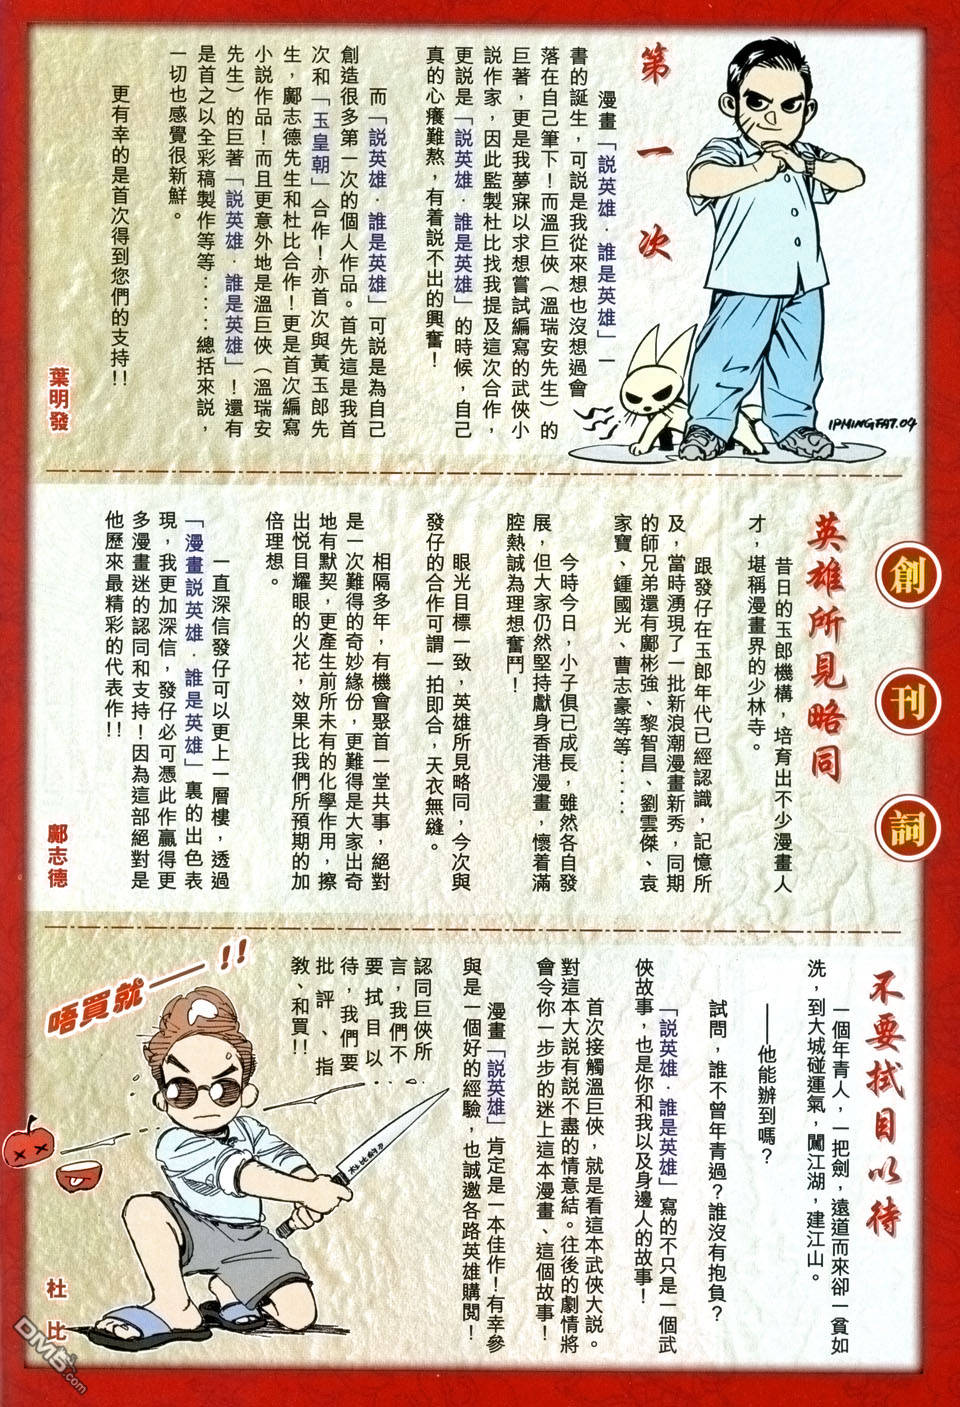 創刊詞
第一次
漫畫「説英雄．誰是英雄」一
書的誕生，可説是我從來想也沒想過會
落在自己筆下！而溫巨俠（溫瑞安先生）的
巨著，更是我夢寐以求想嘗試編寫的武俠小
説作家，因此監製杜比找我提及這次合作，
更説是「説英雄．誰是英雄」的時候，自己
真的心癢難熬，有着説不出的興奮！
而「説英雄．誰是英雄」可説是為自己
創造很多第一次的個人作品。首先這是我首
次和「玉皇朝」合作！亦首次與黃玉郎先
生，鄺志德先生和杜比合作！更是首次編寫
小説作品！而且更意外地是溫巨俠（溫瑞安
先生）的巨著「説英雄．誰是英雄」！還有
是首之以全彩稿製作等等：：：總括來説，
一切也感覺很新鮮。
更有幸的是首次得到您們的支持!!
葉明發
IPMINGFAT.04
英雄所見略同
昔日的玉郎機構，培育出不少漫畫人
才，堪稱漫畫界的少林寺。
跟發仔在玉郎年代已經認識，記憶所
及，當時湧現了一批新浪潮漫畫新秀，同期
的師兄弟還有鄺彬強、黎智昌、劉雲傑、袁
家寶、鍾國光、曹志豪等等：：：
今時今日，小子俱已成長，雖然各自發
展，但大家仍然堅持獻身香港漫畫，懷着滿
腔熱誠為理想奮鬥！
眼光目標一致，英雄所見略同，今次與
發仔的合作可謂一拍即合，天衣無縫。
相隔多年，有機會聚首一堂共事，絕對
是一次難得的奇妙緣份，更難得是大家出奇
地有默契，更產生前所未有的化學作用，擦
出悦目耀眼的火花，效果比我們所預期的加
倍理想。
一直深信發仔可以更上一層樓，透過
「漫畫説英雄．誰是英雄」裏的出色表
現，我更加深信，發仔必可憑此作贏得更
多漫畫迷的認同和支持！因為這部絕對是
他歷來最精彩的代表作!!
鄺志德
不要拭目以待
一個年青人，一把劍，遠道而來卻一貧如
洗，到大城碰運氣，闖江湖，建江山。
——他能辦到嗎？
試問，誰不曾年青過？誰沒有抱負？
「説英雄．誰是英雄」寫的不只是一個武
俠故事，也是你和我以及身邊人的故事！
首次接觸溫巨俠，就是看這本武俠大説。
對這本大説有説不盡的情意結。往後的劇情將
會令你一步步的迷上這本漫畫、這個故事！
漫畫「説英雄」肯定是一本佳作！有幸參
與是一個好的經驗，也誠邀各路英雄購閲！
認同巨俠所
言，我們不
要拭目以
待，我們要
批評、指
教、和買!!
唔買就——!!
杜比
DM5.com